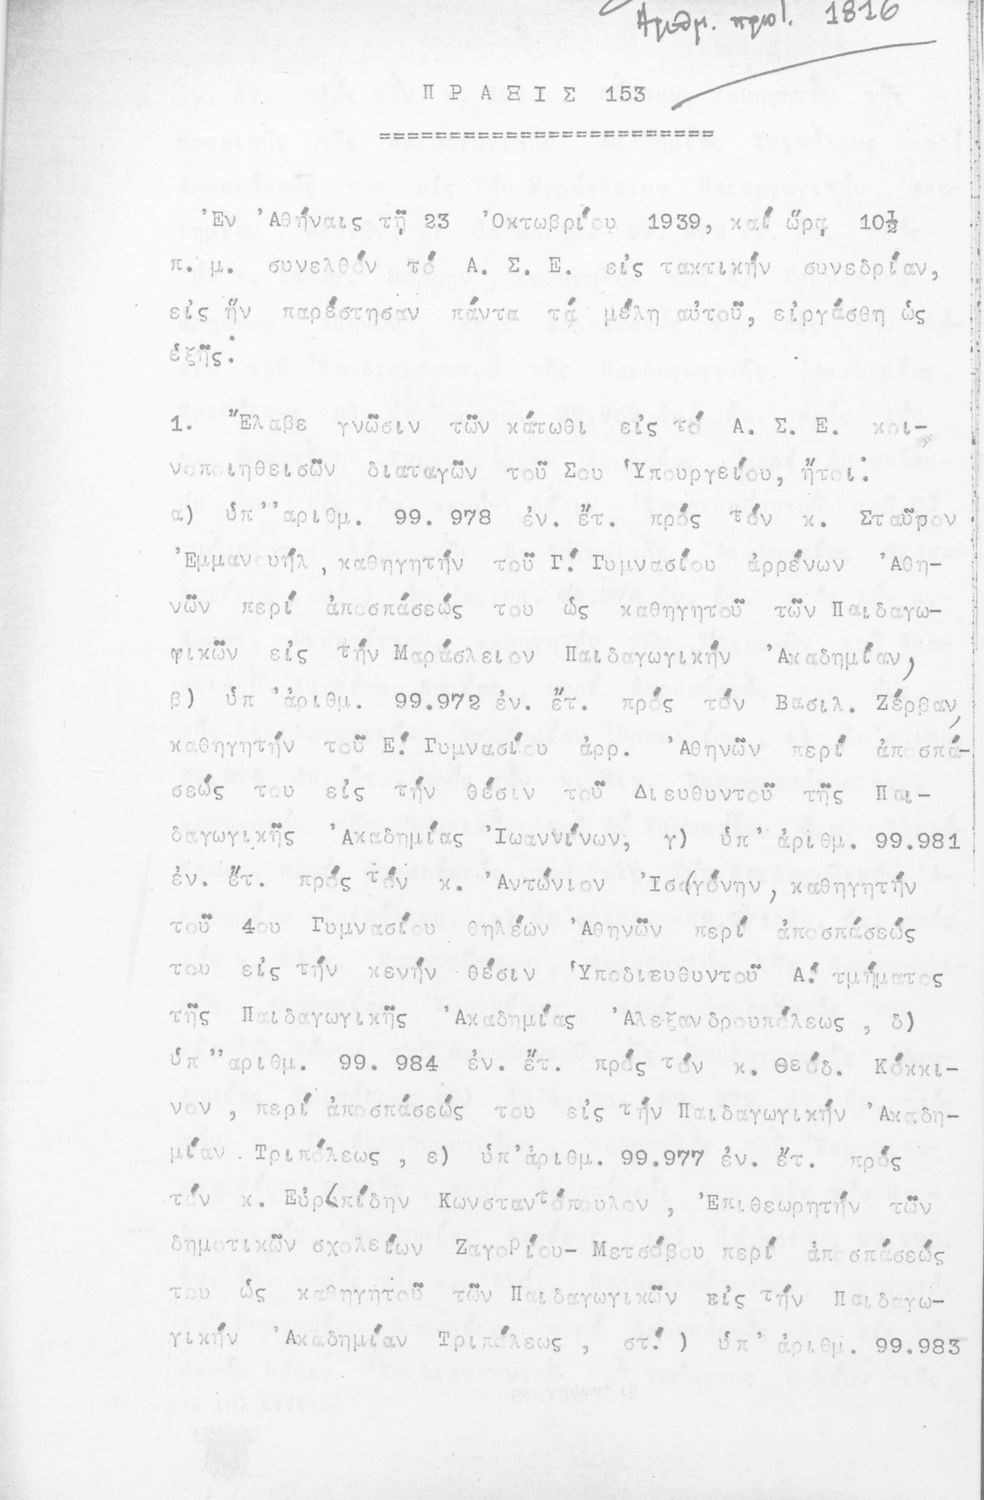 Αριθμ. πρωτ. 1816
Π Ρ Α Ξ Ι Σ 153
========================
Ἐν Ἀθήναις τῇ 23 Ὀκτωβρίου 1939, καί ὥρᾳ 10½
π. μ. συνελθόν τό Α. Σ. Ε. εἰς τακτικήν συνεδρίαν,
εἰς ἥν παρέστησαν πάντα τά μέλη αὐτοῦ, εἰργάσθη ὡς
ἑξῆς:
1. Ἔλαβε γνῶσιν τῶν κάτωθι εἰς τό Α. Σ. Ε. κοι-
νοποιηθεισῶν διαταγῶν τοῦ Σου Ὑπουργείου, ἤτοι:
α) ὑπ' ἀριθμ. 99.978 ἐν. ἔτ. πρός τόν κ. Σταῦρον
Ἐμμανουήλ, καθηγητήν τοῦ Γ! Γυμνασίου ἀρρένων Ἀθη-
νῶν περί ἀποσπάσεώς του ὡς καθηγητοῦ τῶν Παιδαγω-
φικῶν εἰς τήν Μαράσλειον Παιδαγωγικήν Ἀκαδημίαν,
β) ὑπ' ἀριθμ. 99.972 ἐν. ἔτ. πρός τόν Βασιλ. Ζέρβαν,
καθηγητήν τοῦ Ε! Γυμνασίου ἀρρ. Ἀθηνῶν περί ἀποσπά-
σεώς του εἰς τήν θέσιν τοῦ Διευθυντοῦ τῆς Παι-
δαγωγικῆς Ἀκαδημίας Ἰωαννίνων, γ) ὑπ' ἀριθμ. 99.981
ἐν. ἔτ. πρός τόν κ. Ἀντώνιον Ἰσηγόνην, καθηγητήν
τοῦ 4ου Γυμνασίου θηλέων Ἀθηνῶν περί ἀποσπάσεώς
του εἰς τήν κενήν θέσιν Ὑποδιευθυντοῦ Α! τμήματος
τῆς Παιδαγωγικῆς Ἀκαδημίας Ἀλεξανδρουπόλεως, δ)
ὑπ' ἀριθμ. 99. 984 ἐν. ἔτ. πρός τόν κ. Θεόδ. Κόκκι-
νον, περί ἀποσπάσεώς του εἰς τήν Παιδαγωγικήν Ἀκαδη-
μίαν Τριπόλεως, ε) ὑπ' ἀριθμ. 99.977 ἐν. ἔτ. πρός
τόν κ. Εὐριπίδην Κωνσταντόπουλον, Ἐπιθεωρητήν τῶν
δημοτικῶν σχολείων Ζαγορίου- Μετσόβου περί ἀποσπάσεώς
του ὡς καθηγητοῦ τῶν Παιδαγωγικῶν εἰς τήν Παιδαγω-
γικήν Ἀκαδημίαν Τριπόλεως, στ!) ὑπ' ἀριθμ. 99.983